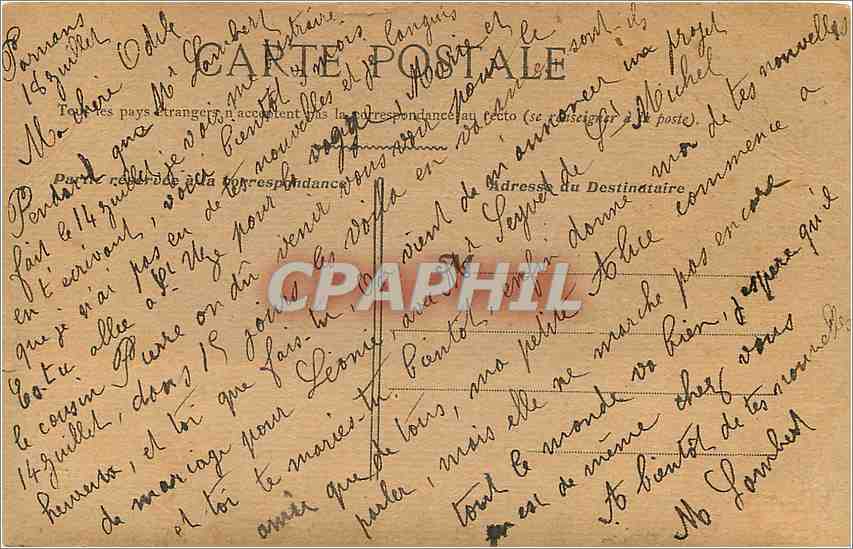 CARTE POSTALE
Tous les pays étrangers n'acceptent pas la correspondance au recto (se renseigner à la poste).
Partie réservée à la correspondance
Adresse du Destinataire
CPAPHIL
Parnans
18 juillet
Ma chère Odile
Pendant que Mr Lambert
fait le 14 juillet je vais me distraire
en t'écrivant, voici bientôt 3 mois
que je n'ai pas eu de tes nouvelles et je languis
Es-tu allée à St Uze pour la vogue, Marie et
le cousin Pierre on dû venir vous voir pour le
14 juillet, dans 15 jours les voilà en vacances sont-ils
heureux, et toi que fais-tu On vient de m'annoncer un projet
de mariage pour Léonie, avec Seyvet de St Michel
et toi te maries-tu bientôt, enfin donne moi de tes nouvelles
ainsi que de tous, ma petite Alice commence a
parler, mais elle ne marche pas encore
tout le monde va bien, j'espère qu'il
en est de même chez vous
A bientôt de tes nouvelles
M Lambert